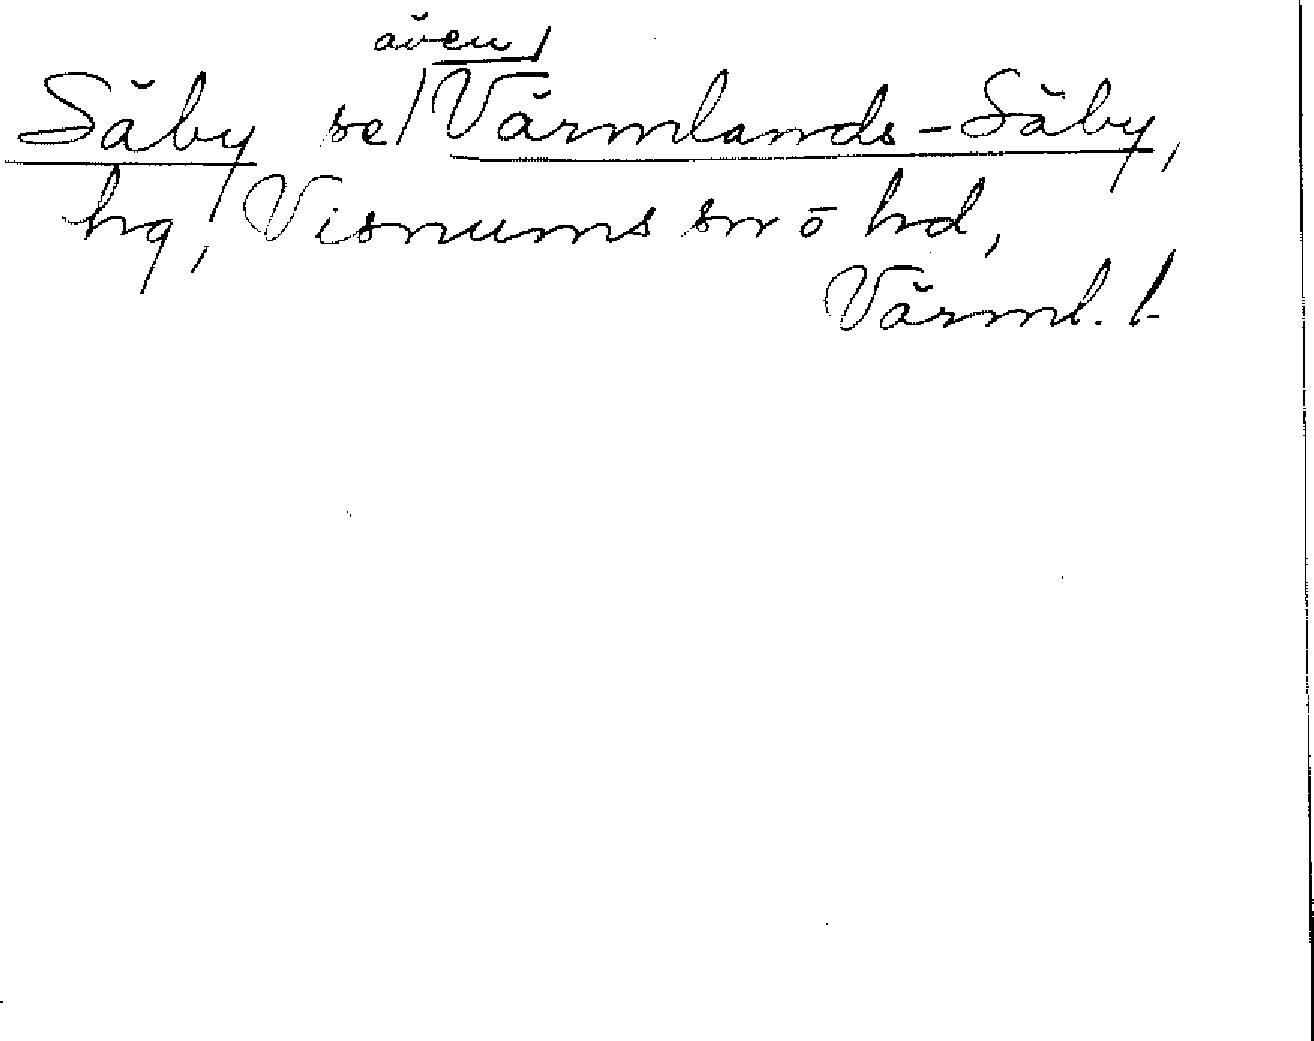 även
Säby se Värmlands-Säby,
hg, Visnums sn o hd,
Värml. l.